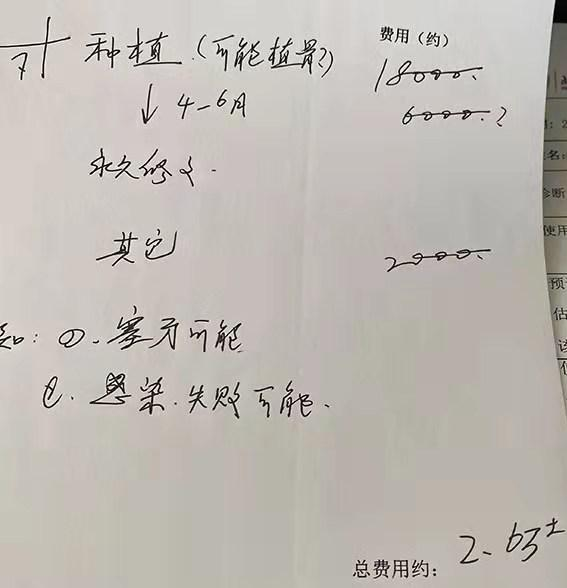 费用（约）
7
种植（可能植骨？） 18000.
↓ 4-6月 6000.？
永久修复.
其它 2000.
知：①、塞牙可能
②. 感染.失败可能.
总费用约：2.6万±
诊断
使用